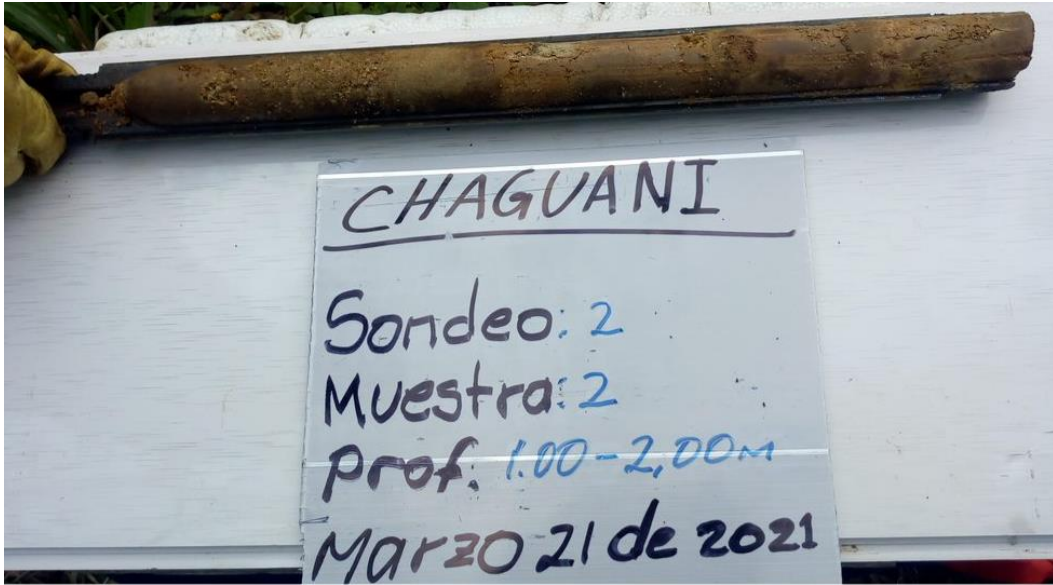 CHAGUANI
Sondeo: 2
Muestra: 2
Prof. 1.00-2,00m
Marzo 21 de 2021